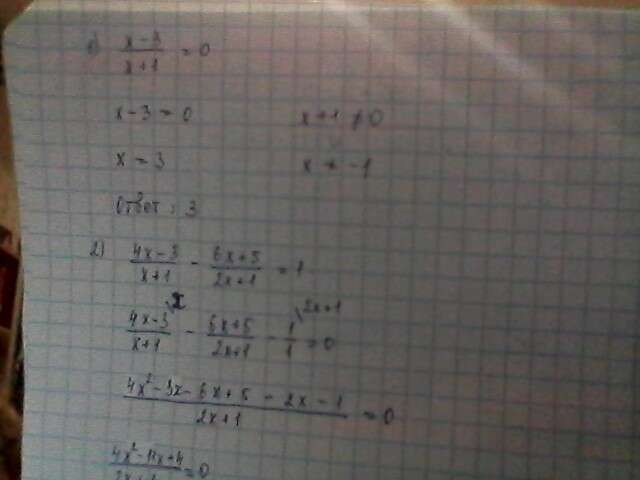 1) (x-3)/(x+1) = 0
x-3=0 x+1≠0
x=3 x≠-1
Ответ: 3
2) (4x-3)/(x+1) - (6x+5)/(2x+1) = 1
(4x-3)/(x+1) \x - (6x+5)/(2x+1) - 1/1 \2x+1 =0
(4x²-3x-6x+5-2x-1)/(2x+1) =0
(4x²-11x+4)/(2x+1) =0